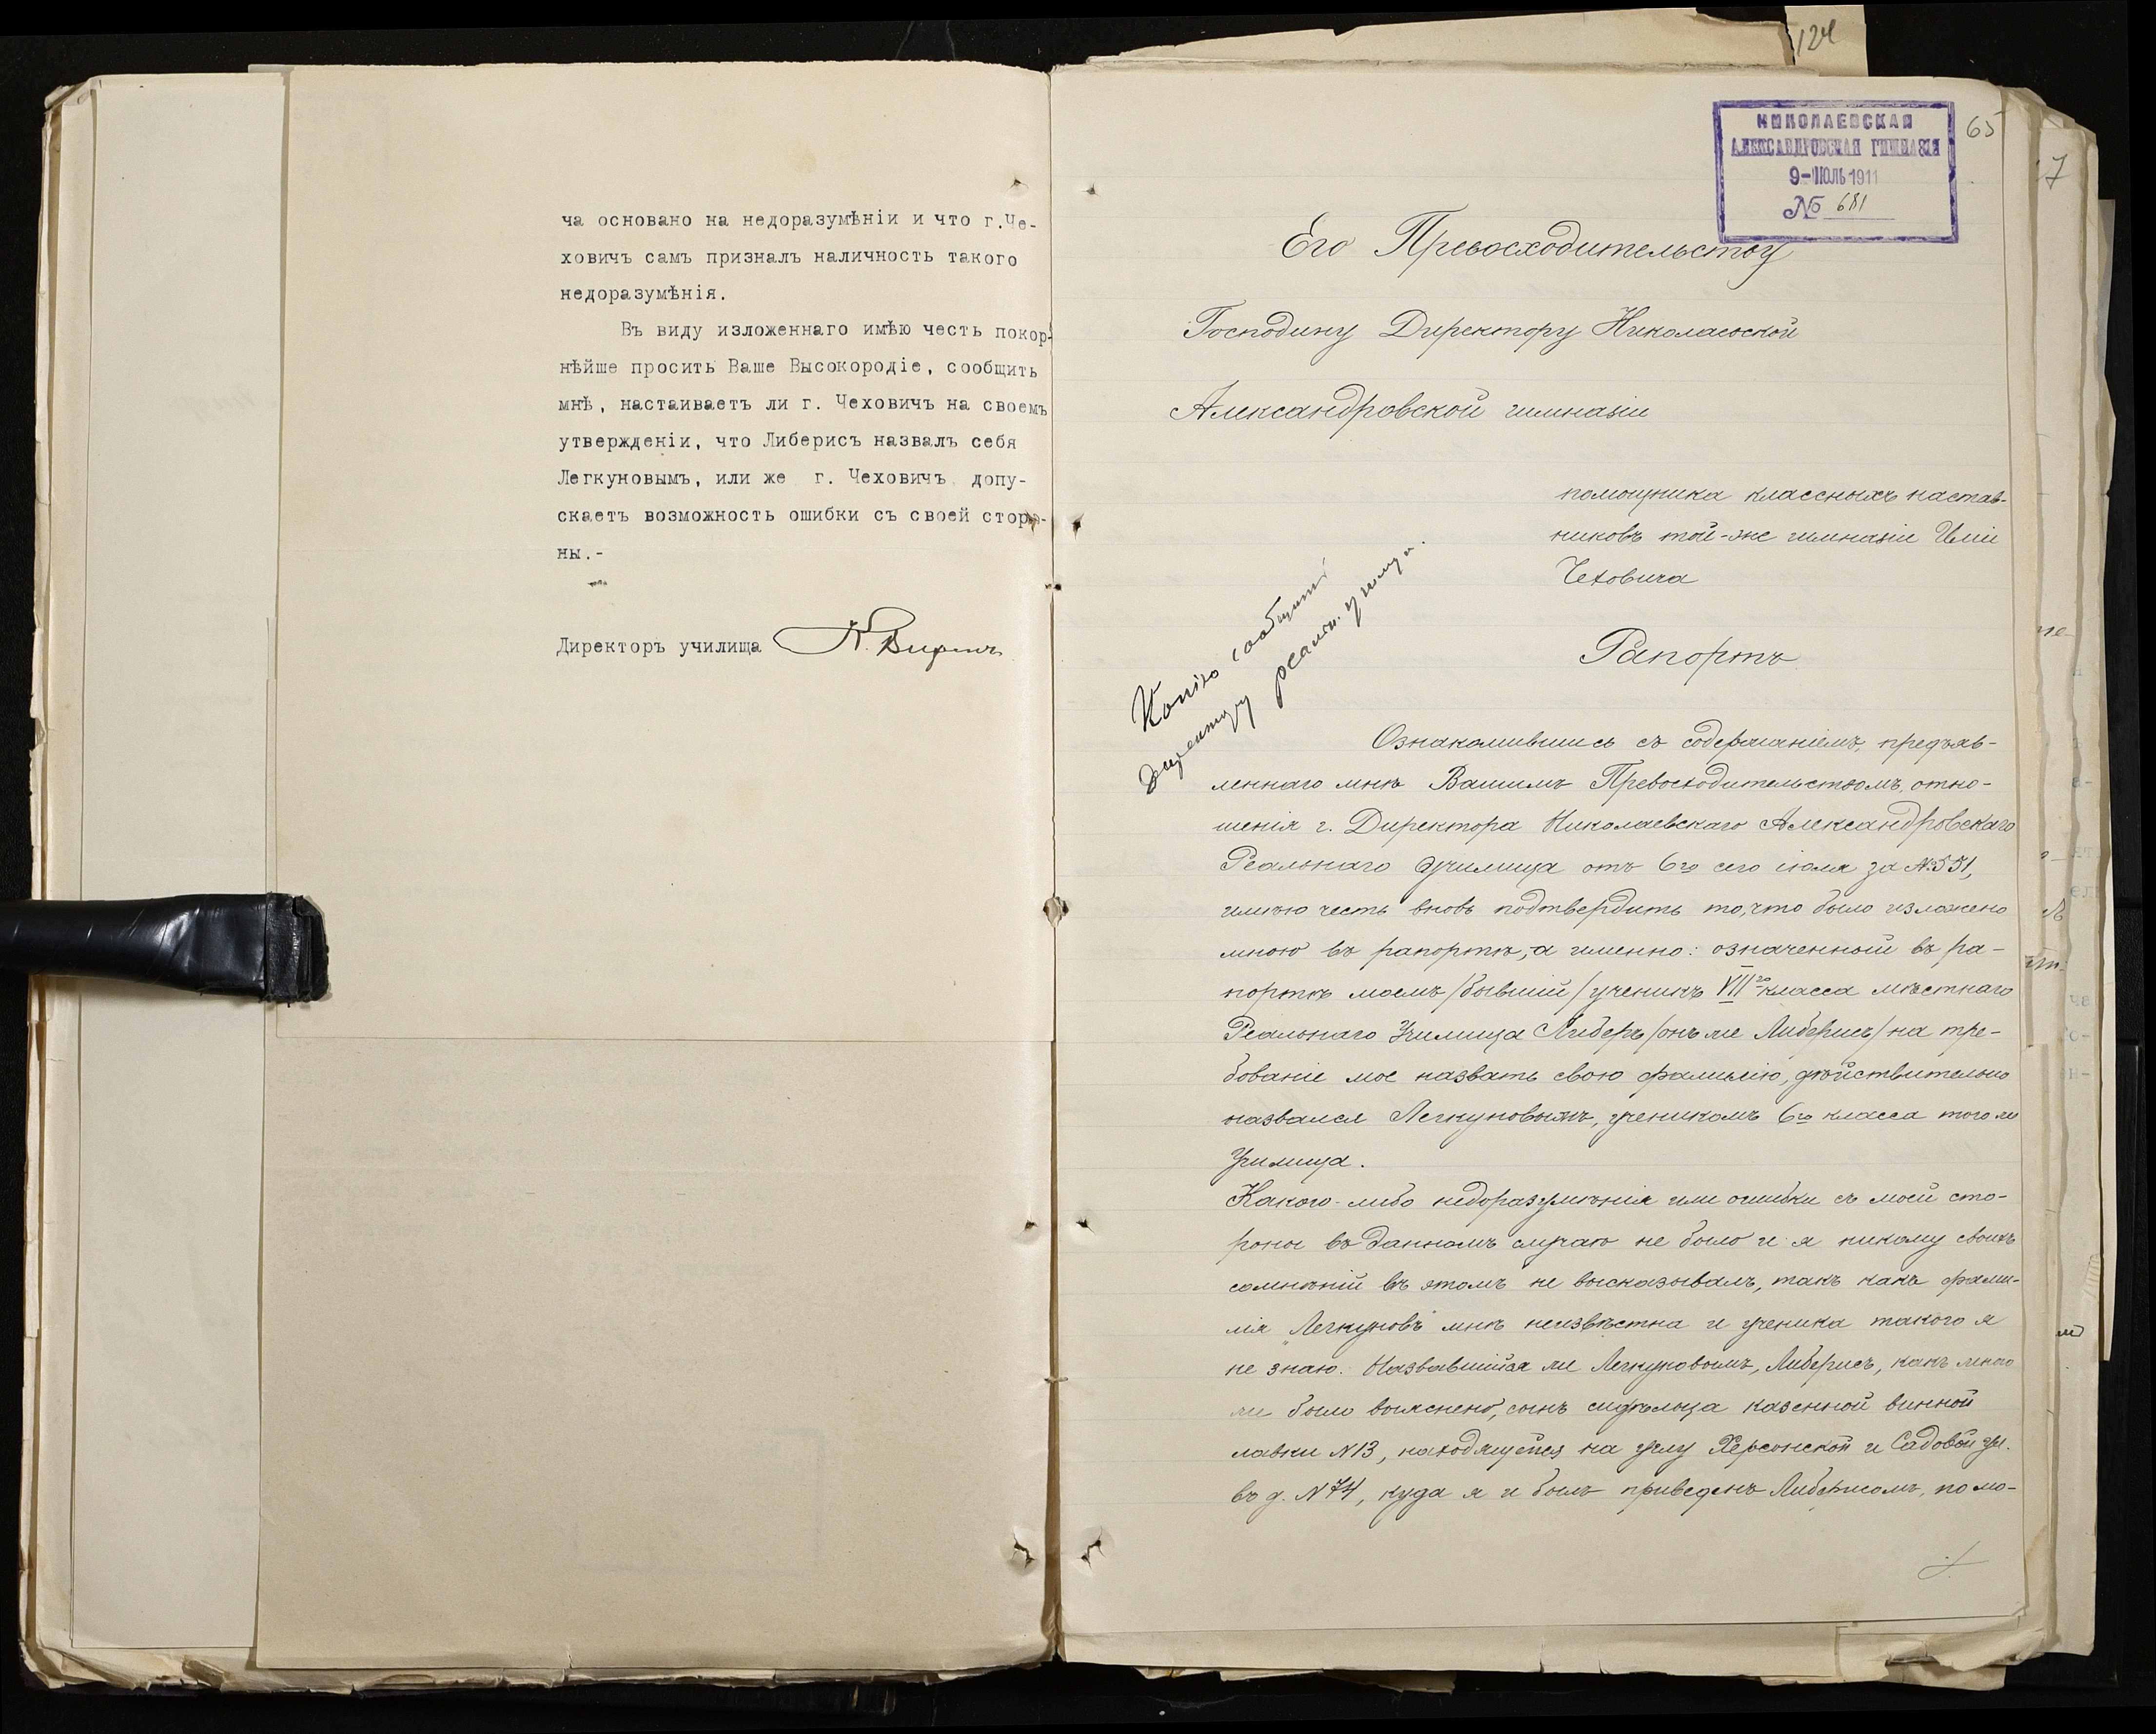 ча основано на недоразумѣніи и что г.Че-
ховичъ самъ призналъ наличность такого
недоразумѣнія.
Въ виду изложеннаго имѣю честь покор-
нѣйше просить Ваше Высокородіе, сообщить
мнѣ, настаиваетъ ли г. Чеховичъ на своемъ
утвержденіи, что Либерисъ назвалъ себя
Легкуновымъ, или же г. Чеховичъ допу-
скаетъ возможность ошибки съ своей сторо-
ны.-
Директоръ училища
124
65
7
НИКОЛАЕВСКАЯ
АЛЕКСАНДРОВСКАЯ ГИМНАЗІЯ
9-ІЮЛЬ 1911
№ 681
Его Превосходительству
Господину Директору Николаевской
Александровской гимназіи
помощника классныхъ настав-
никовъ той-же гимназіи Иліи
Чеховича
Копію сообщить
директору реальн. училища.
Рапортъ
Ознакомившись съ содержаніемъ, предъяв-
леннаго мнѣ Вашимъ Превосходительствомъ, отно-
шенія г. Директора Николаевскаго Александровскаго
Реальнаго Училища отъ 6го сего іюля за №551,
имѣю честь вновь подтвердить то, что было изложено
мною въ рапортѣ, а именно: означенный въ ра-
портѣ моемъ /бывшій/ ученикъ VIIго класса мѣстнаго
Реальнаго Училища Либеръ /онъ же Либерисъ/ на тре-
бованіе мое назвать свою фамилію, дѣйствительно
назвался Легкуновымъ, ученикомъ 6го класса того же
Училища.
Какого-либо недоразумѣнія или ошибки съ моей сто-
роны въ данномъ случаѣ не было и я никому своихъ
сомнѣній въ этомъ не высказывалъ, такъ какъ фами-
лія "Легкуновъ" мнѣ неизвѣстна и ученика такого я
не знаю. Назвавшійся же Легкуновымъ, Либерисъ, какъ мною
же было выяснено, сынъ сидѣльца казенной винной
лавки №13, находящейся на углу Херсонской и Садовой ул.
въ д. №74, куда я и былъ приведенъ Либерисомъ, по мо-